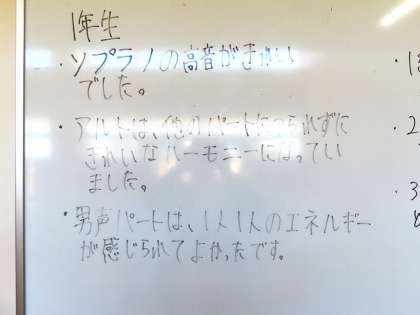 1年生
・ソプラノの高音がきれい
でした。
・アルトは、他のパートにつられずに
きれいなハーモニーになってい
ました。
・男声パートは、1人1人のエネルギー
が感じられてよかったです。
・1
・2
・3